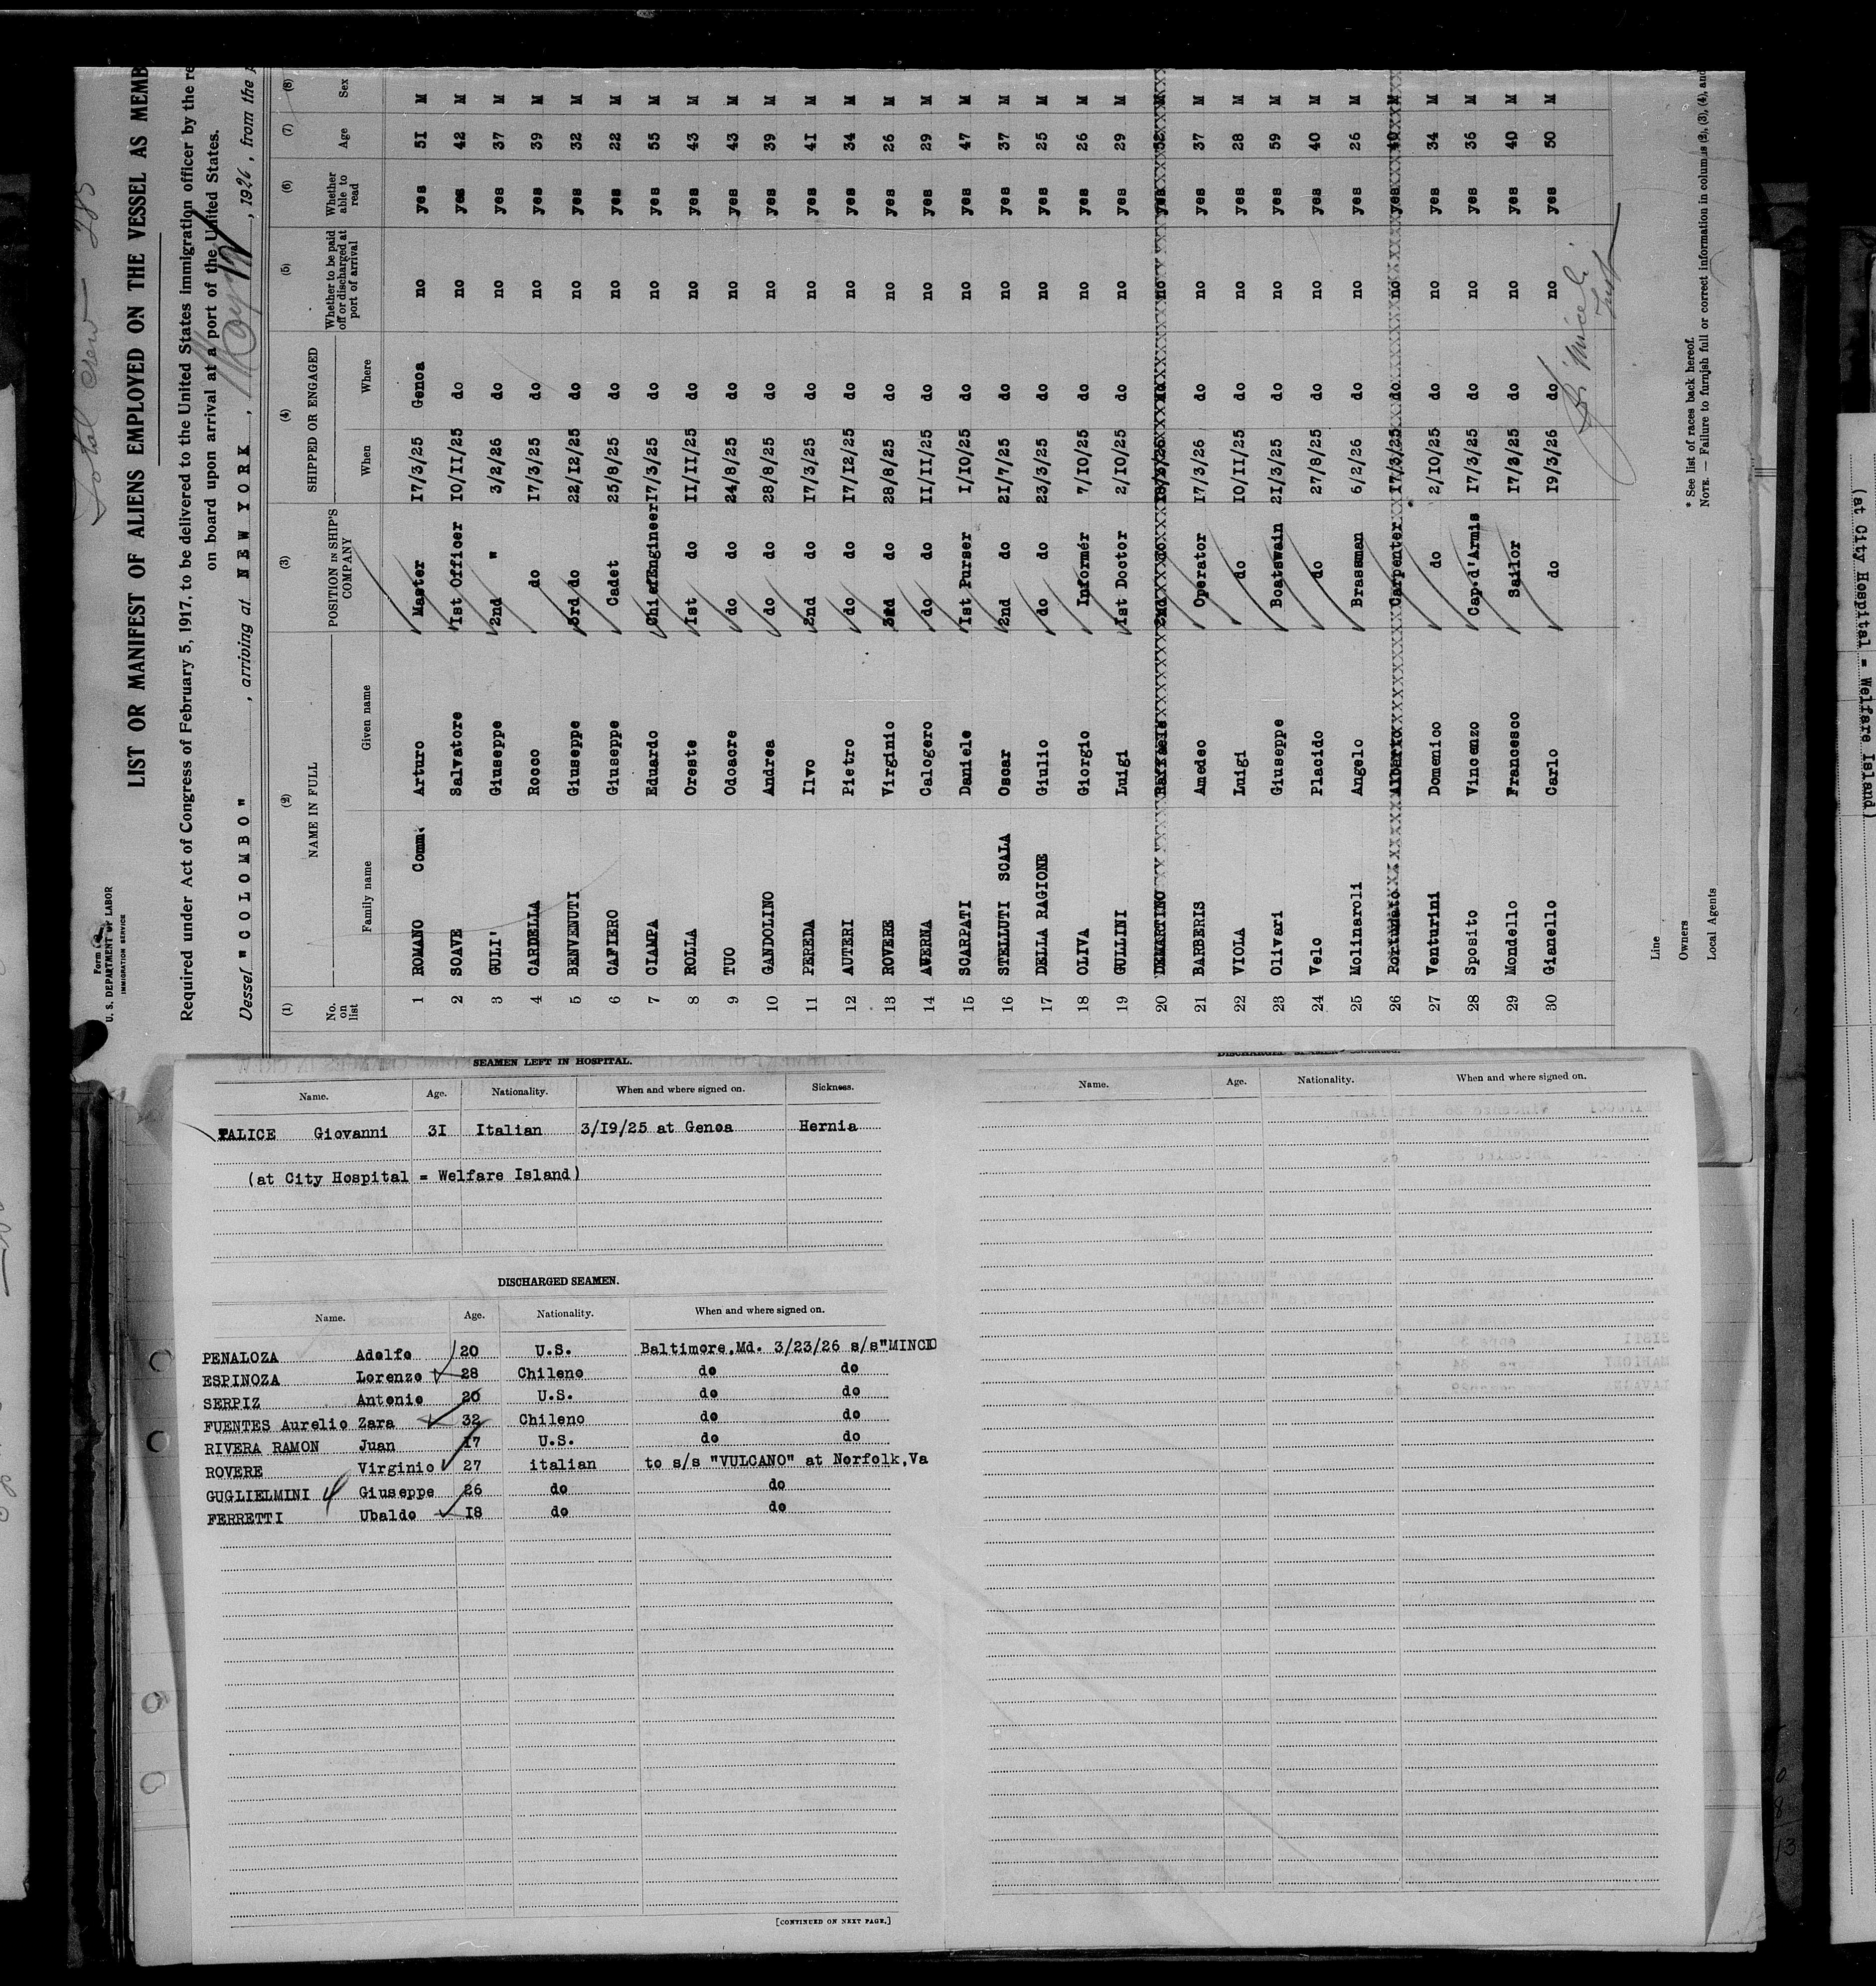 Total Crew — 285
Form
U. S. DEPARTMENT OF LABOR
IMMIGRATION SERVICE
LIST OR MANIFEST OF ALIENS EMPLOYED ON THE VESSEL AS MEMB
Required under Act of Congress of February 5, 1917, to be delivered to the United States immigration officer by the re
on board upon arrival at a port of the United States.
Vessel "COLOMBO", arriving at NEW YORK, May 12, 1926, from the p
(1) (2) (3) (4) (5) (6) (7) (8)
No. on list NAME IN FULL POSITION IN SHIP'S COMPANY SHIPPED OR ENGAGED Whether to be paid off or discharged at port of arrival Whether able to read Age Sex
Family name Given name When Where
1 ROMANO Comm. Arturo Master 17/3/25 Genoa no yes 51 M
2 SOAVE Salvatore 1st Officer 10/11/25 do no yes 42 M
3 GULI' Giuseppe 2nd " 3/2/26 do no yes 37 M
4 CARDELLA Rocco do 17/3/25 do no yes 39 M
5 BENVENUTI Giuseppe 3rd do 22/12/25 do no yes 32 M
6 CAFIERO Giuseppe Cadet 25/8/25 do no yes 22 M
7 CIAMPA Eduardo Chief Engineer 17/3/25 do no yes 55 M
8 ROLLA Oreste 1st do 11/11/25 do no yes 43 M
9 TUO Odoacre do do 24/8/25 do no yes 43 M
10 GANDOLINO Andrea do do 28/8/25 do no yes 39 M
11 PEREDA Ilvo 2nd do 17/3/25 do no yes 41 M
12 AUTERI Pietro do do 17/12/25 do no yes 34 M
13 ROVERE Virginio 3rd do 28/8/25 do no yes 26 M
14 AVERNA Calogero do do 11/11/25 do no yes 29 M
15 SCARPATI Daniele 1st Purser 1/10/25 do no yes 47 M
16 STELLUTI SCALA Oscar 2nd do 21/7/25 do no yes 37 M
17 DELLA RAGIONE Giulio do do 23/3/25 do no yes 25 M
18 OLIVA Giorgio Informér 7/10/25 do no yes 26 M
19 GULLINI Luigi 1st Doctor 2/10/25 do no yes 29 M
20 DEMARTINO 2nd do do no yes M
21 BARBERIS Amedeo Operator 17/3/26 do no yes 37 M
22 VIOLA Luigi do 10/11/25 do no yes 28 M
23 Olivari Giuseppe Boatswain 21/3/25 do no yes 59 M
24 Velo Placido do 27/8/25 do no yes 40 M
25 Molinaroli Angelo Brassman 6/2/26 do no yes 26 M
26 Portunato Alberto Carpenter 17/3/25 do no yes 40 M
27 Venturini Domenico do 2/10/25 do no yes 34 M
28 Sposito Vincenzo Cap.d'Armis 17/3/25 do no yes 36 M
29 Mondello Francesco Sailor 17/3/25 do no yes 40 M
30 Gianello Carlo do 19/3/26 do no yes 50 M
Line
Owners
Local Agents
* See list of races back hereof.
NOTE.—Failure to furnish full or correct information in columns (2), (3), (4), and
SEAMEN LEFT IN HOSPITAL.
Name. Age. Nationality. When and where signed on. Sickness.
TALICE Giovanni 31 Italian 3/19/25 at Genoa Hernia
(at City Hospital = Welfare Island)
DISCHARGED SEAMEN.
Name. Age. Nationality. When and where signed on.
PENALOZA Adolfo 20 U.S. Baltimore,Md. 3/23/26 s/s"MINCIO
ESPINOZA Lorenzo 28 Chileno do do
SERPIZ Antonio 26 U.S. do do
FUENTES Aurelio Zara 32 Chileno do do
RIVERA RAMON Juan 17 U.S. do do
ROVERE Virginio 27 italian to s/s "VULCANO" at Norfolk,Va
GUGLIELMINI Giuseppe 26 do do
FERRETTI Ubaldo 18 do do
[CONTINUED ON NEXT PAGE.]
Name. Age. Nationality. When and where signed on.
(at City Hospital = Welfare Island)